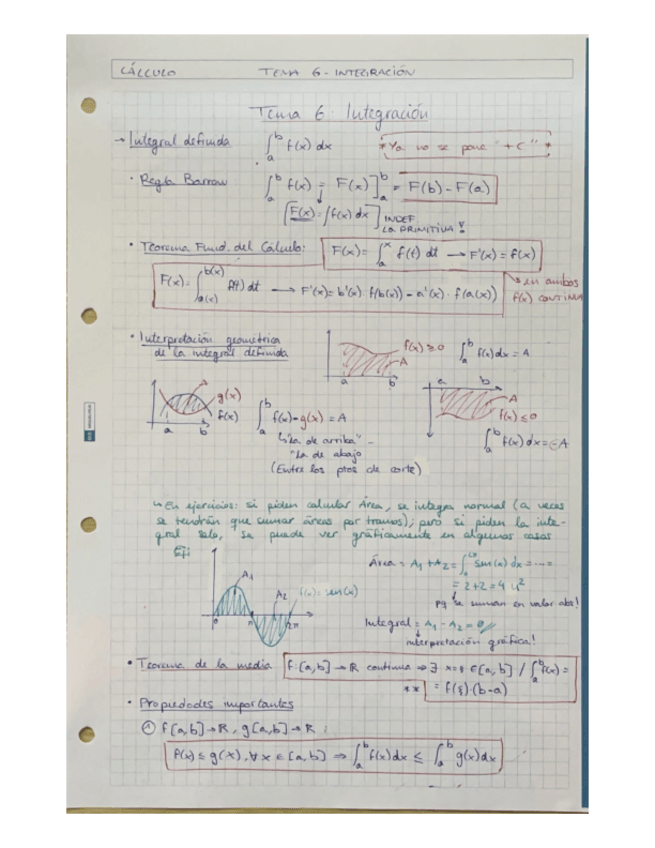 CÁLCULO TEMA 6 - INTEGRACIÓN
Tema 6. Integración
→ Integral definida ∫ₐᵇ f(x) dx *Ya no se pone "+C"*
· Regla Barrow ∫ₐᵇ f(x) = F(x)]ₐᵇ = F(b) - F(a)
[F(x) = ∫f(x) dx] INDEF.
LA PRIMITIVA!
· Teorema Fund. del Cálculo: F(x) = ∫ₐˣ f(t) dt → F'(x) = f(x)
F(x) = ∫_{a(x)}^{b(x)} f(t) dt → F'(x) = b'(x) · f(b(x)) - a'(x) · f(a(x))
→ en ambos
f(x) CONTINUA
· Interpretación geométrica
de la integral definida
f(x) ≥ 0
A
a b
∫ₐᵇ f(x) dx = A
A
g(x)
f(x)
a b
∫ₐᵇ f(x) - g(x) = A
"La de arriba" -
"La de abajo
(Entre los ptos de corte)
a b
A
f(x) ≤ 0
∫ₐᵇ f(x) dx = -A
↳ En ejercicios: si piden calcular Área, se integra normal (a veces
se tendrán que sumar áreas por tramos); pero si piden la inte-
gral solo, se puede ver gráficamente en algunos casos
Ej:
A₁
A₂
f(x) = sen(x)
0 π 2π
Área = A₁ + A₂ = sen(x) dx = ... =
= 2+2 = 4 u²
pq se suman en valor abs!
Integral = A₁ - A₂ = 0
interpretación gráfica!
· Teorema de la media f: [a,b] → R continua ⇒ ∃ ∈ [a,b] / ∫ₐᵇ f(x) =
** = f(ξ)·(b-a)
· Propiedades importantes
① f [a,b] → R, g [a,b] → R :
f(x) ≤ g(x), ∀ x ∈ [a,b] ⇒ ∫ₐᵇ f(x) dx ≤ ∫ₐᵇ g(x) dx